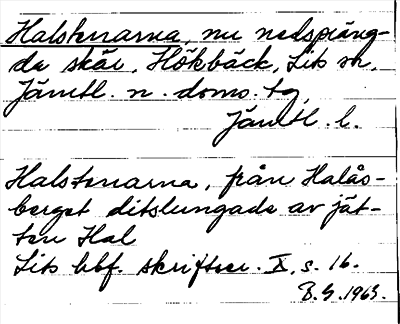 Halstenarna, nu nedspräng-
da skär, Hökbäck, Lits sn,
Jämtl. n. doms. tg,
Jämtl. l.
Halstenarna, från Halås-
berget ditslungade av jät-
ten Hal
Lits hbf. skriftser. X, s. 16.
B.G. 1963.